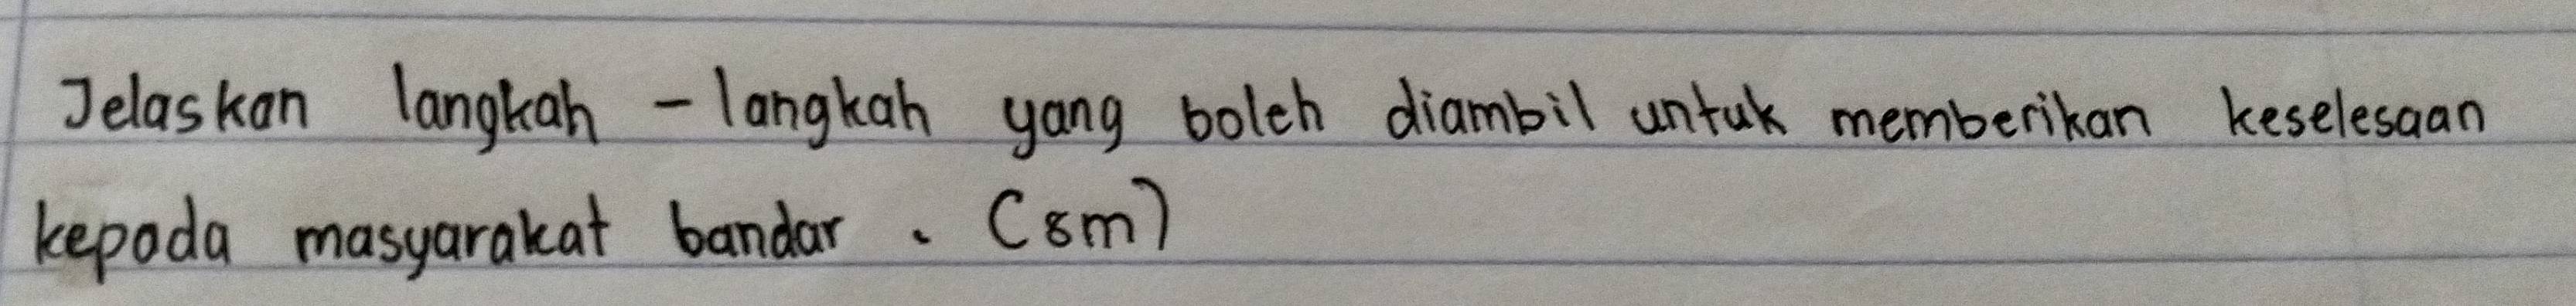 Jelaskan langkah - langkah yang boleh diambil untuk memberikan keselesaan
kepada masyarakat bandar . (8m)